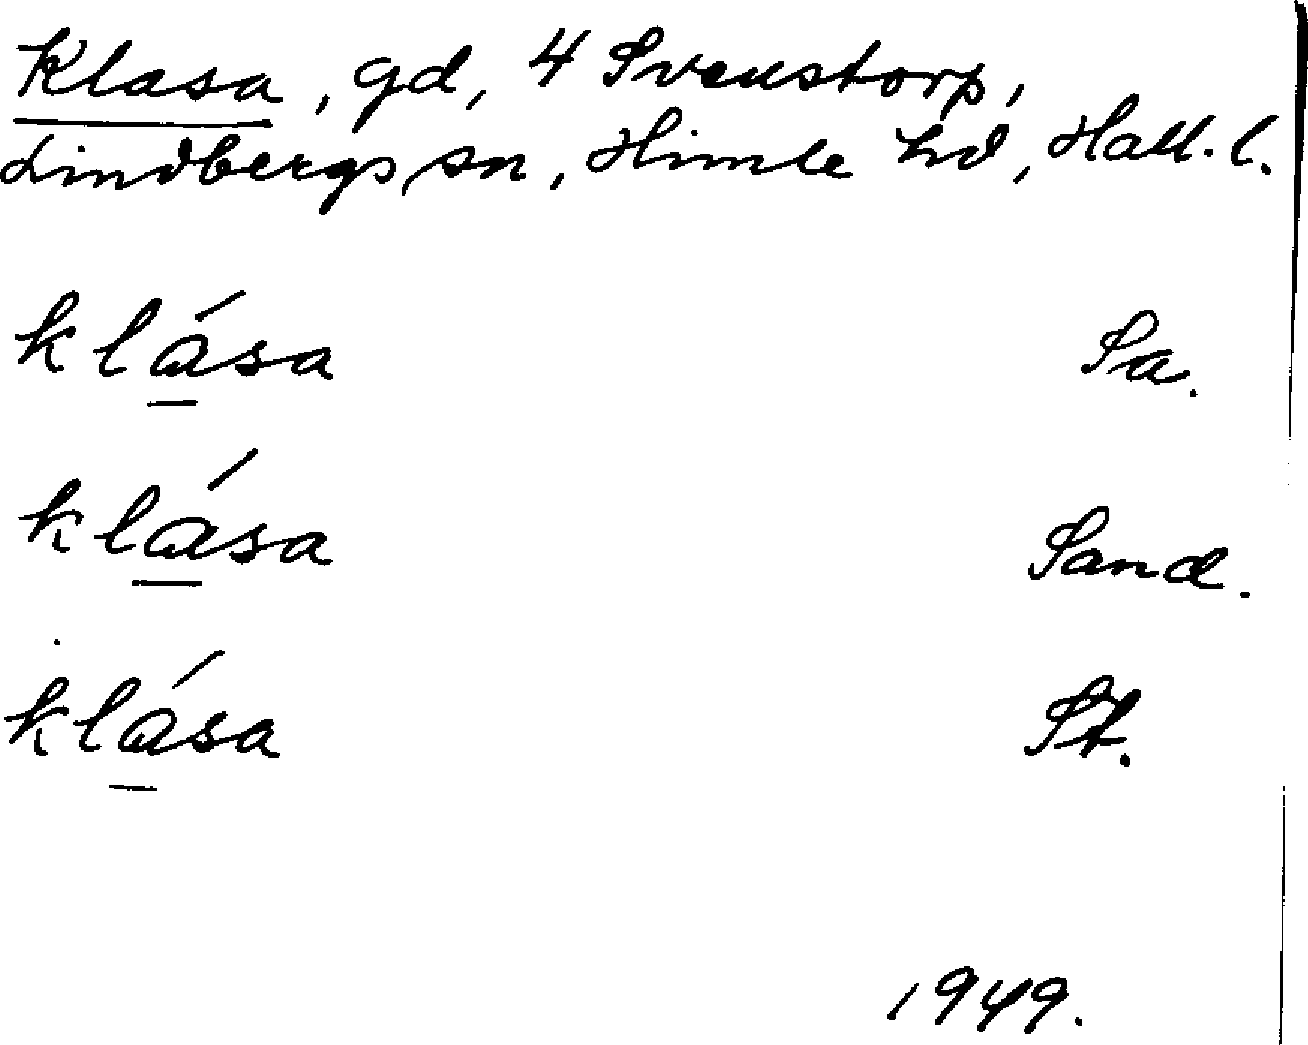 Klasa, gd, 4 Svenstorp,
Lindbergs sn, Himle hd, Hall. l.
klása Sa.
klása Sand.
klása St.
1949.